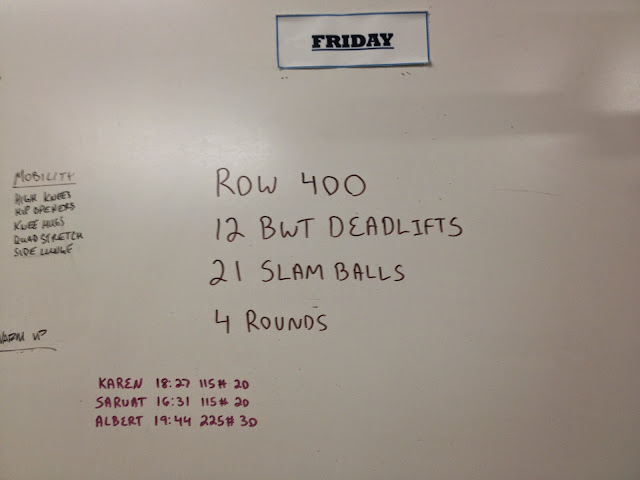 FRIDAY
MOBILITY
HIGH KNEES
HIP OPENERS
KNEE HUGS
QUAD STRETCH
SIDE LUNGE
ROW 400
12 BWT DEADLIFTS
21 SLAM BALLS
4 ROUNDS
WARM UP
KAREN 18:27 115# 20
SARVAT 16:31 115# 20
ALBERT 19:44 225# 30